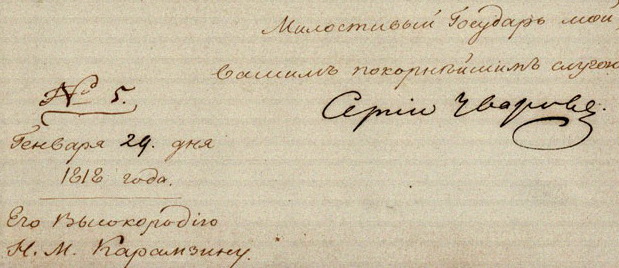 Милостивый Государь мой,
вашимъ покорнѣйшимъ слугою
Сергій Уваровъ.
№ 5.
Генваря 29. дня
1818 года.
Его Высокородію
Н. М. Карамзину.